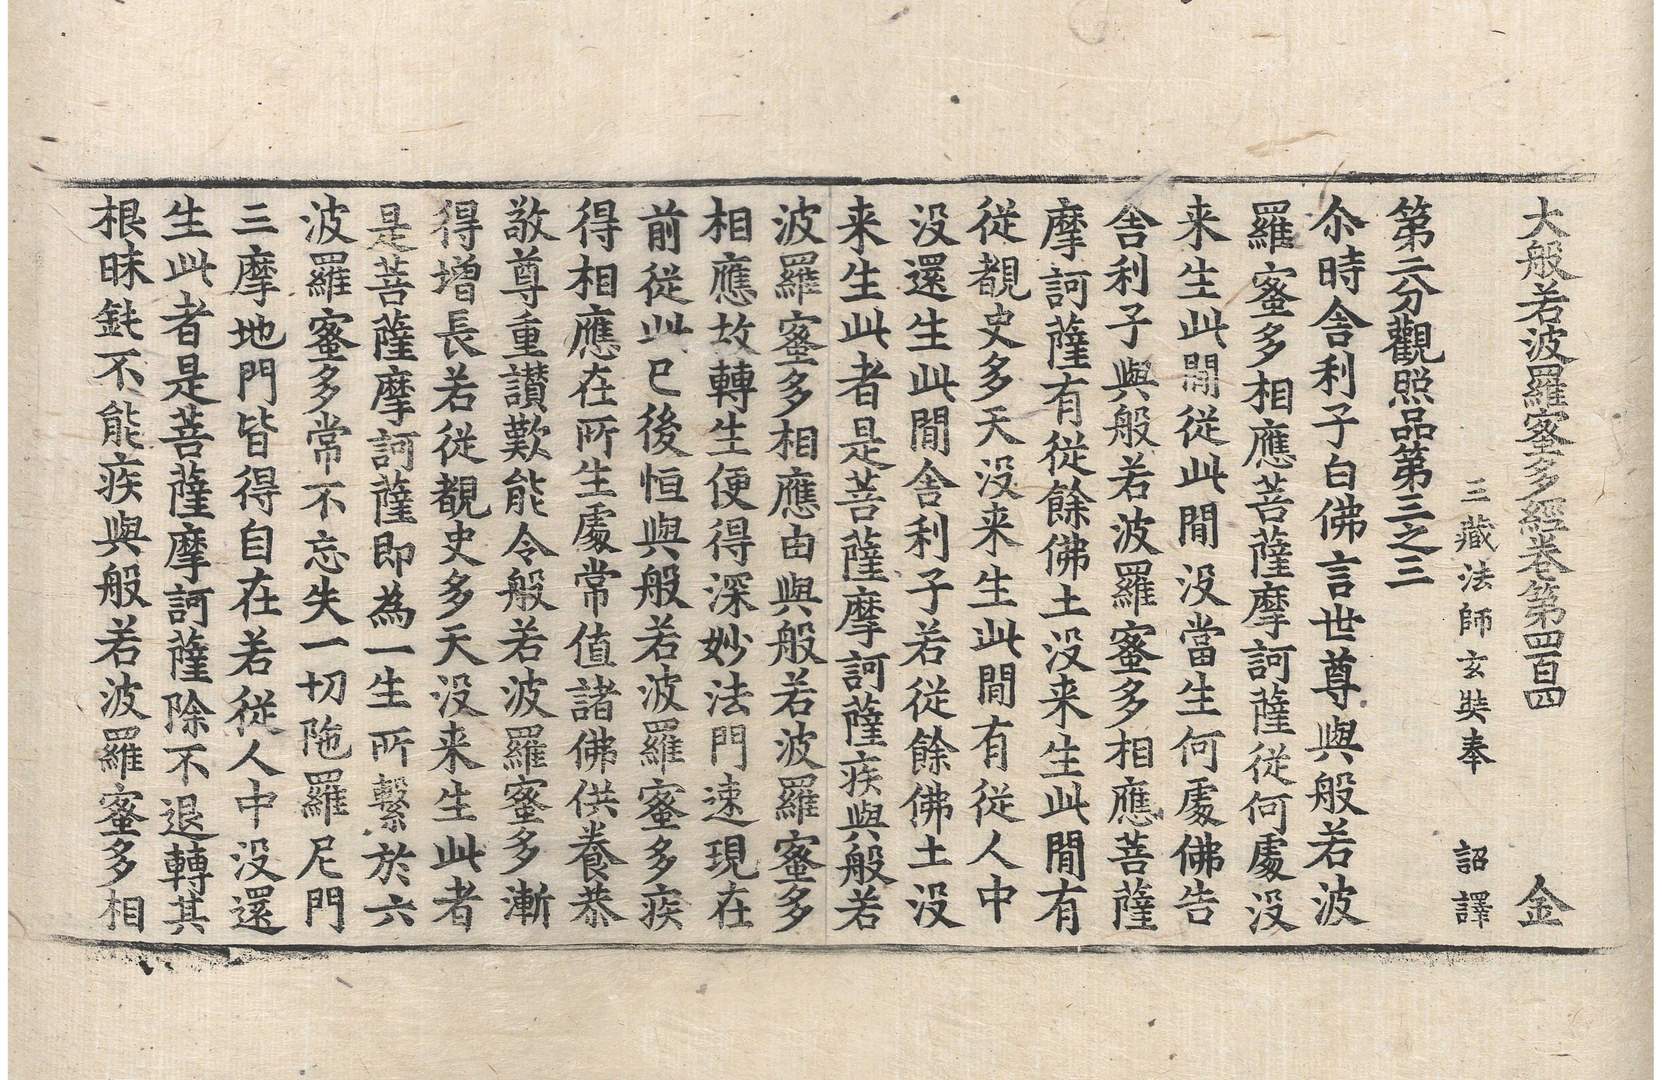 大般若波羅蜜多經卷第四百四 金
三藏法師玄奘奉 詔譯
第二分觀照品第三之三
尒時舍利子白佛言世尊與般若波
羅蜜多相應菩薩摩訶薩從何處没
来生此間從此間没當生何處佛告
舍利子與般若波羅蜜多相應菩薩
摩訶薩有從餘佛土没来生此間有
從覩史多天没来生此間有從人中
没還生此間舍利子若從餘佛土没
来生此者是菩薩摩訶薩疾與般若
波羅蜜多相應由與般若波羅蜜多
相應故轉生便得深妙法門速現在
前從此已後恒與般若波羅蜜多疾
得相應在所生處常值諸佛供養恭
敬尊重讃歎能令般若波羅蜜多漸
得增長若從覩史多天没来生此者
是菩薩摩訶薩即為一生所繫於六
波羅蜜多常不忘失一切陁羅尼門
三摩地門皆得自在若從人中没還
生此者是菩薩摩訶薩除不退轉其
根昧鈍不能疾與般若波羅蜜多相